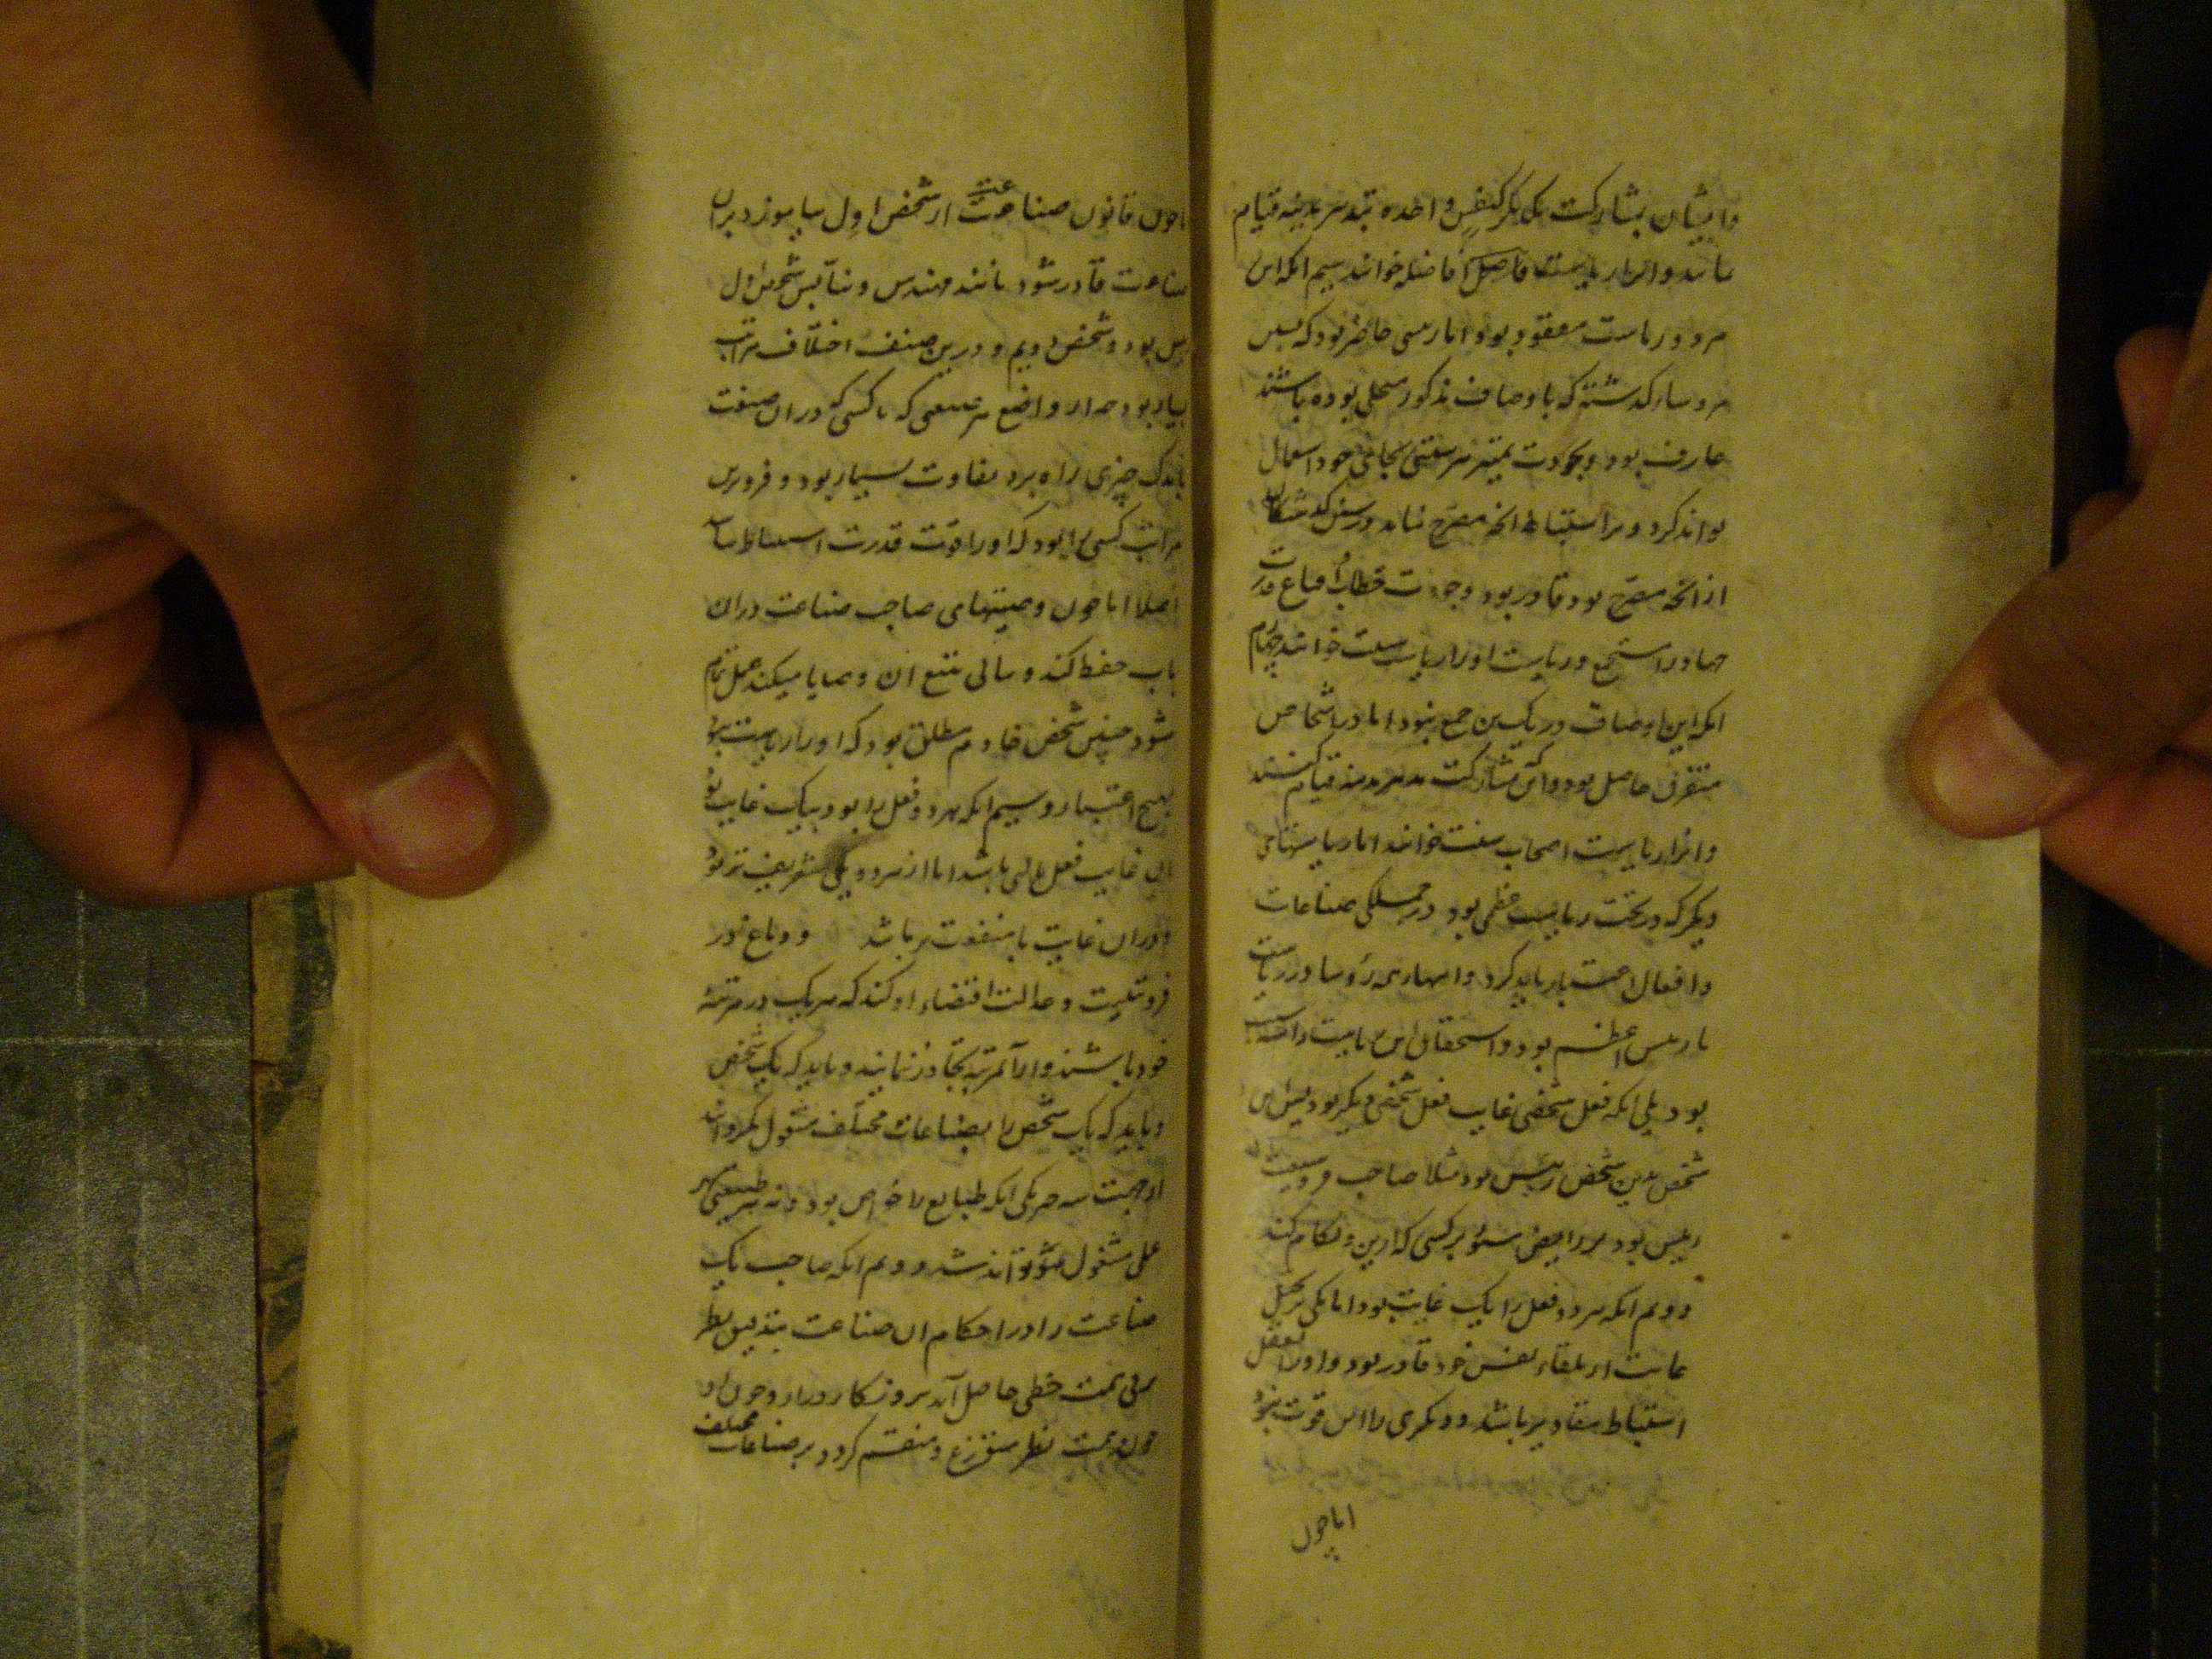 وایشان بمشارکت یکدیگر کنفس واحده بتدبیر مدینه قیام
نمایند و انرا ریاست افاضل خوانند سیم انکه این
هر دو ریاست مفقود بود اما رئیسی حاضر بود که بسنن
روسا گذشته که باوصاف مذکور متحلی بوده باشند
عارف بود و بجودت تمییز هر سنتی بجای خود استعمال
تواند کرد و بر استنباط انچه مصرح نیابد در سنن گذشتگان
از انچه مصرح بود قادر بود و جودت خطاب و اقناع و قدرت
جهاد را مستجمع و ریاست او را ریاست سنت خوانند چهارم
انکه این اوصاف در یک تن جمع نبود اما در اشخاص
متفرق حاصل بود و ایشان بمشارکت بتدبیر مدینه قیام کنند
و انرا ریاست اصحاب سنت خوانند اما ریاستهای
دیگر که در تحت ریاست عظمی بود در جملگی صناعات
و افعال اعتبار باید کرد و انتهای همه رؤسا در ریاست
با رئیس اعظم بود و استحقاق این ریاست را سه سبب
بود یکی انکه فعل شخصی غایت فعل شخصی دیگر بود پس این
شخص بر ان شخص رئیس بود مثلا صاحب فروسیت
رئیس بود بر رایض ستور بر کسی که زین و لگام کند
دویم انکه هر دو فعل را یک غایت بود اما یکی بر تخیل
غایت از تلقاء نفس خود قادر بود و او را تعقل
استنباط مقادیر باشد و دیگری را این قوت نبود
اما چون
اما چون قانون صناعت از شخص اول بیاموزد بران
صناعت قادر شود مانند مهندس و بنا پس شخص اول
رئیس بود و شخص دویم و درین صنف اختلاف مراتب
بسیار بود چه از واضع هر صنعتی که تا کسی که دران صنعت
باندک چیزی راه برد تفاوت بسیار بود و فروترین
مراتب کسی را بود که او را قوت قدرت استنباط نباشد
اصلا اما چون وصیتهای صاحب صناعت دران
باب حفظ کند و سالی تتبع ان وصایا میکند عمل تمام
شود چنین شخص خادم مطلق بود که او را ریاست نبود
بهیچ اعتبار و سیم انکه هر دو فعل را بود بیک غایت بود
ان غایت فعل ثالث باشد اما از هر دو یکی شریف تر بود
و دران غایت با منفعت تر باشد و دباغ در
فروسیت و عدالت اقتضاء ان کند که هر یک در مرتبه
خود باشند و از ان مرتبه تجاوز ننمایند و باید که یک شخص
و باید که یک شخص را بصناعات مختلف مشغول نگردانند
از جهت سه چیز یکی انکه طبایع را خواص بود و نه هر طبیعتی بهر
عمل مشغول تواند شد و دویم انکه صاحب یک
صناعت را در احکام ان صناعت بتدقیق نظر
و ترقی همت حظی حاصل آید بروزگار دراز و چون ان
نظر و همت متوزع و منقسم گردد بر صناعات مختلف